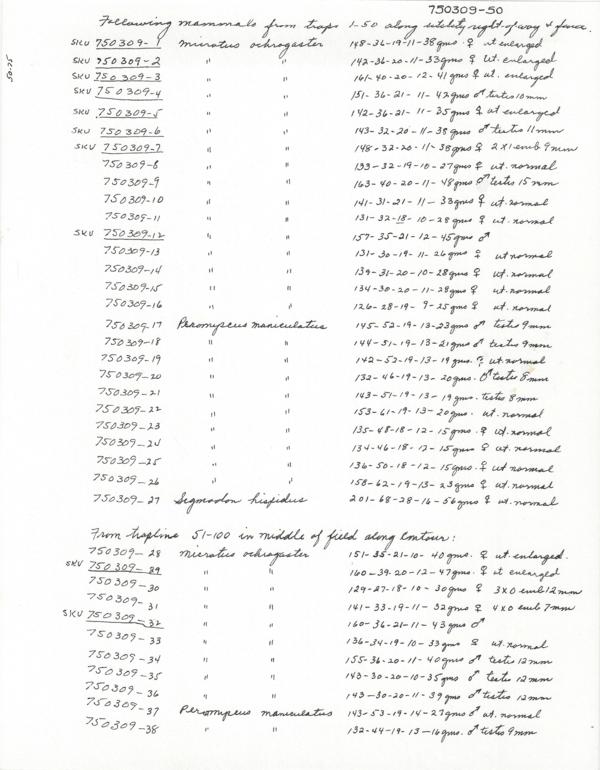 750309-50
50-75
Following mammals from traps 1-50 along utility right of way & fence.
SKU 750309-1 Microtus ochrogaster 148-36-19-11-38gms ♀ ut enlarged
SKU 750309-2 " " 142-36-20-11-33gms ♀ ut. enlarged
SKU 750309-3 " " 161-40-20-12-41gms ♀ ut. enlarged
SKU 750309-4 " " 151-36-21-11-42gms ♂ testis 10mm
SKU 750309-5 " " 142-36-21-11-35gms ♀ ut enlarged
SKU 750309-6 " " 143-32-20-11-38gms ♂ testis 11mm
SKU 750309-7 " " 148-32-20-11-38gms ♀ 2X1 emb 9mm
750309-8 " " 133-32-19-10-27gms ♀ ut. normal
750309-9 " " 163-40-20-11-48gms ♂ testes 15mm
750309-10 " " 141-31-21-11-33gms ♀ ut. normal
750309-11 " " 131-32-18-10-28gms ♀ ut. normal
SKU 750309-12 " " 157-35-21-12-45gms ♂
750309-13 " " 131-30-19-11-26gms ♀ ut normal
750309-14 " " 139-31-20-10-28gms ♀ ut. normal
750309-15 " " 134-30-20-11-28gms ♀ ut. normal
750309-16 " " 126-28-19-9-25gms ♀ ut. normal
750309-17 Peromyscus maniculatus 145-52-19-13-23gms ♂ testis 9mm
750309-18 " " 144-51-19-13-21gms ♂ testis 9mm
750309-19 " " 142-52-19-13-19gms. ♀ ut normal
750309-20 " " 132-46-19-13-20gms. ♂ testis 8mm
750309-21 " " 143-51-19-13-19gms. testis 8mm
750309-22 " " 153-61-19-13-20gms. ut. normal
750309-23 " " 135-48-18-12-15gms. ♀ ut. normal
750309-24 " " 134-46-18-12-15gms ♀ ut. normal
750309-25 " " 136-50-18-12-15gms. ♀ ut normal
750309-26 " " 158-62-19-13-23gms ♀ ut. normal
750309-27 Sigmodon hispidus 201-68-28-16-56gms ♀ ut. normal
From trapline 51-100 in middle of field along contour:
750309-28 Microtus ochrogaster 151-35-21-10-40gms. ♀ ut. enlarged.
SKU 750309-29 " " 160-39-20-12-47gms. ♀ ut enlarged
750309-30 " " 129-27-18-10-30gms ♀ 3X0 emb 12mm
750309-31 " " 141-33-19-11-32gms ♀ 4X0 emb 7mm
SKU 750309-32 " " 160-36-21-11-43gms ♂
750309-33 " " 136-34-19-10-33gms ♀ ut. normal
750309-34 " " 155-36-20-11-40gms ♂ testis 12mm
750309-35 " " 143-30-20-10-35gms ♂ testis 12mm
750309-36 " " 143-30-20-11-39gms ♂ testis 12mm
750309-37 Peromyscus maniculatus 143-53-19-14-27gms ♂ ut. normal
750309-38 " " 132-44-19-13-16gms. ♂ testis 9mm